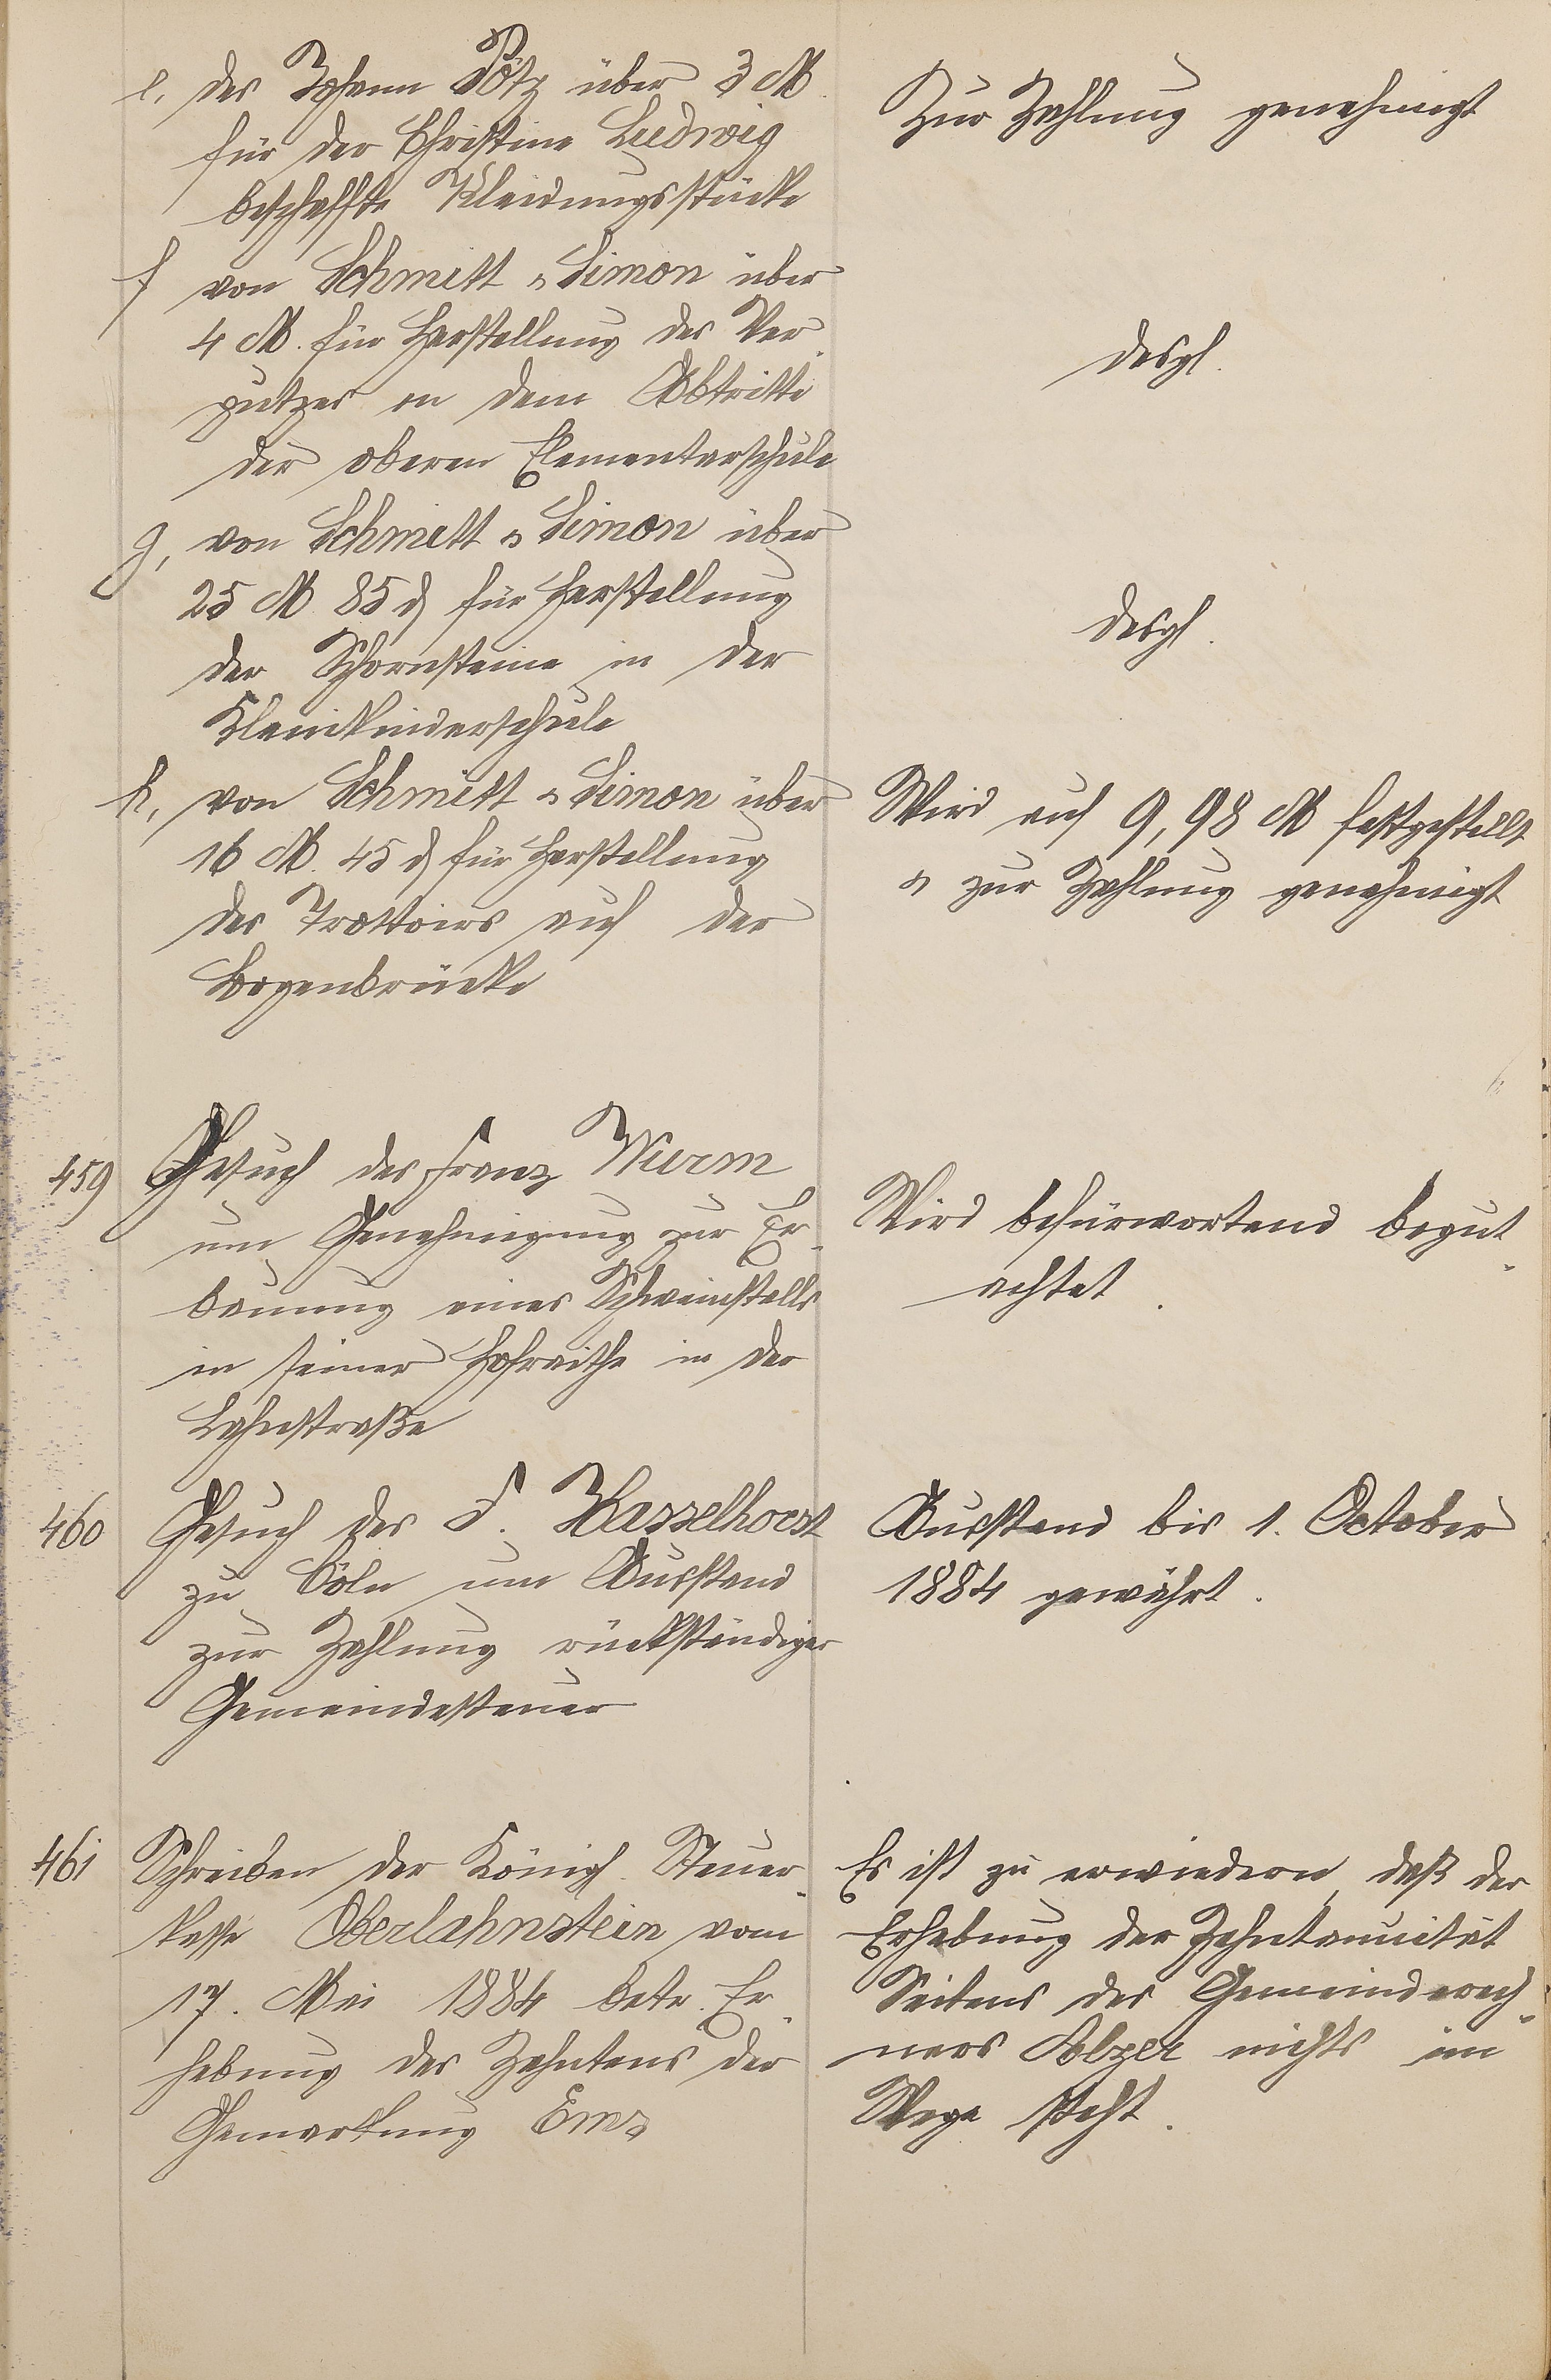 e, des Johann Pötz über 3 M.
für der Christine Ludwig
beschaffte Kleidungsstücke
Zur Zahlung genehmigt
f von Schmitt & Simon über
4 M. für Herstellung des Ver-
putzes an dem Abtritte
der oberen Elementarschule
desgl.
g, von Schmitt & Simon über
25 M. 85 d für Herstellung
der Schornsteine in der
Kleinkinderschule
desgl.
h, von Schmitt & Simon über
16 M. 45 d für Herstellung
des Trottoirs auf der
Bogenbrücke
Wird auf 9,98 M festgestellt
& zur Zahlung genehmigt
459 Gesuch des Franz Wurm
um Genehmigung zur Er-
bauung eines Schweinstalls
in seiner Hofraithe in der
Lahnstraße
Wird befürwortend begut-
achtet.
460 Gesuch des F. Hasselhorst
zu Cöln um Ausstand
zur Zahlung rückständiger
Gemeindesteuer
Ausstand bis 1. October
1884 gewährt.
461 Schreiben der Königl. Steuer-
kasse Oberlahnstein vom
17. Mai 1884 betr. Er-
hebung des Zehntens der
Gemarkung Ems
Es ist zu erwiedern, daß der
Erhebung der Zehntannuität
Seitens des Gemeinderech-
ners nichts im
Wege steht.